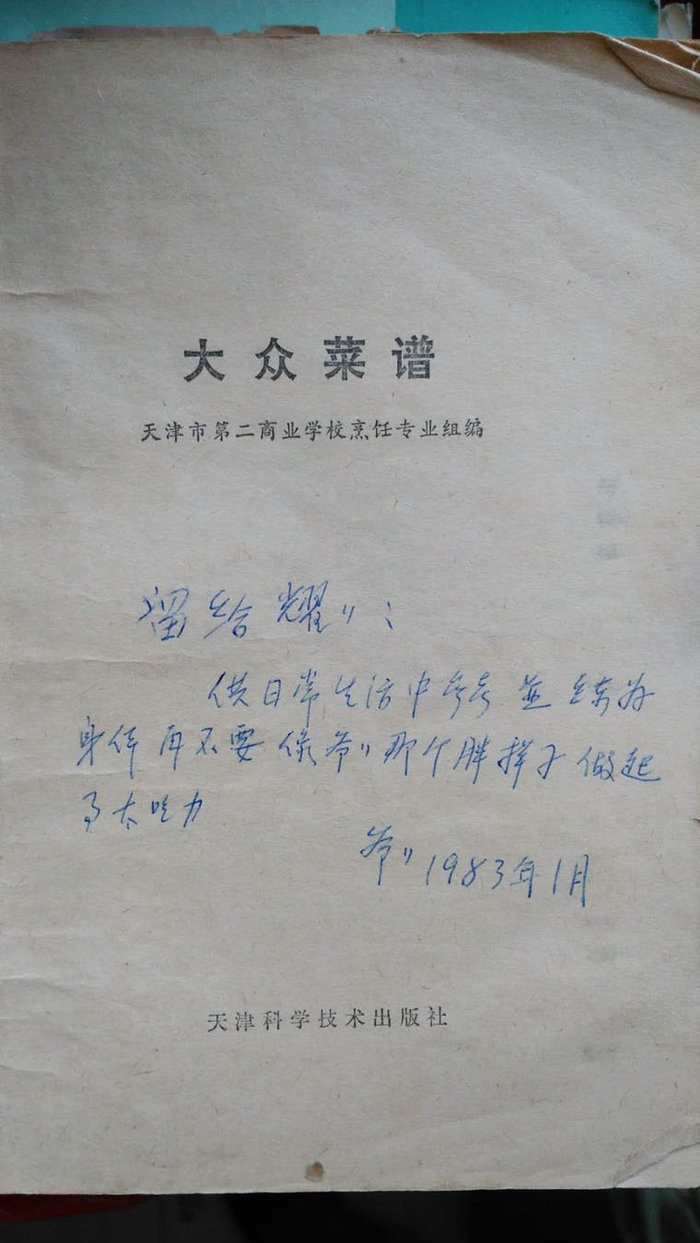 大众菜谱
天津市第二商业学校烹饪专业组编
留给耀〃：
供日常生活中参考並练好
身体再不要像爷〃那个胖样子做起
了太吃力
爷〃1983年1月
天津科学技术出版社